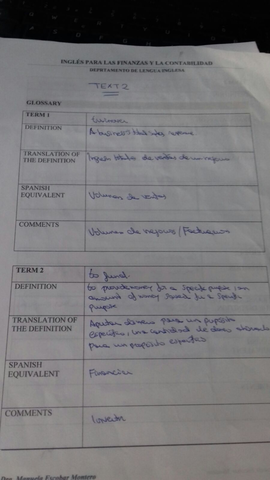 INGLÉS PARA LAS FINANZAS Y LA CONTABILIDAD
DEPARTAMENTO DE LENGUA INGLESA
TEXT 2
GLOSSARY
TERM 1
DEFINITION A business's total sales
TRANSLATION OF THE DEFINITION totales de ventas de un negocio
SPANISH EQUIVALENT Volumen de ventas
COMMENTS Volumen de negocios / Facturación
TERM 2 to fund
DEFINITION to provide money for a specific purpose; an
amount of money saved for a specific
purpose
TRANSLATION OF THE DEFINITION Aportar dinero para un propósito
específico; una cantidad de dinero ahorrada
para un propósito específico
SPANISH EQUIVALENT Financiar
COMMENTS Invertir
Dra. Manuela Escobar Montero